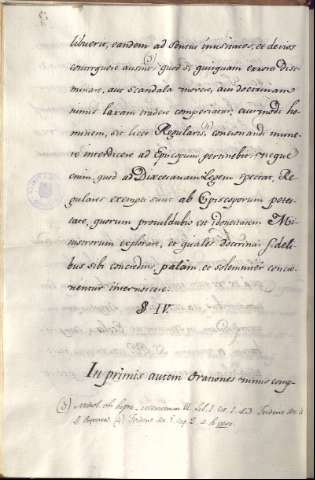 libuerit, eandem ad sensus inusitatos, et devios
contorquere ausint; quod si quisquam errores disse-
minare, aut scandala movere, aut doctrinam
nimis laxam tradere comperiatur, eiusmodi ho-
minem, etc licet Regularis, concionandi mune-
re interdicere ad Episcopum pertinebit; neque
enim, quod ad Diœcesanam Legem spectat, Re-
gulares exempti sunt ab Episcoporum potes-
tate, quorum proculdubio est idoneitatem Mi-
nistrorum explorare, et quales doctrina fideli-
bus sibi concreditis, palam, et solemniter concio-
nentur internoscere.
§ IV.
In primis autem Orationes nimis cong-